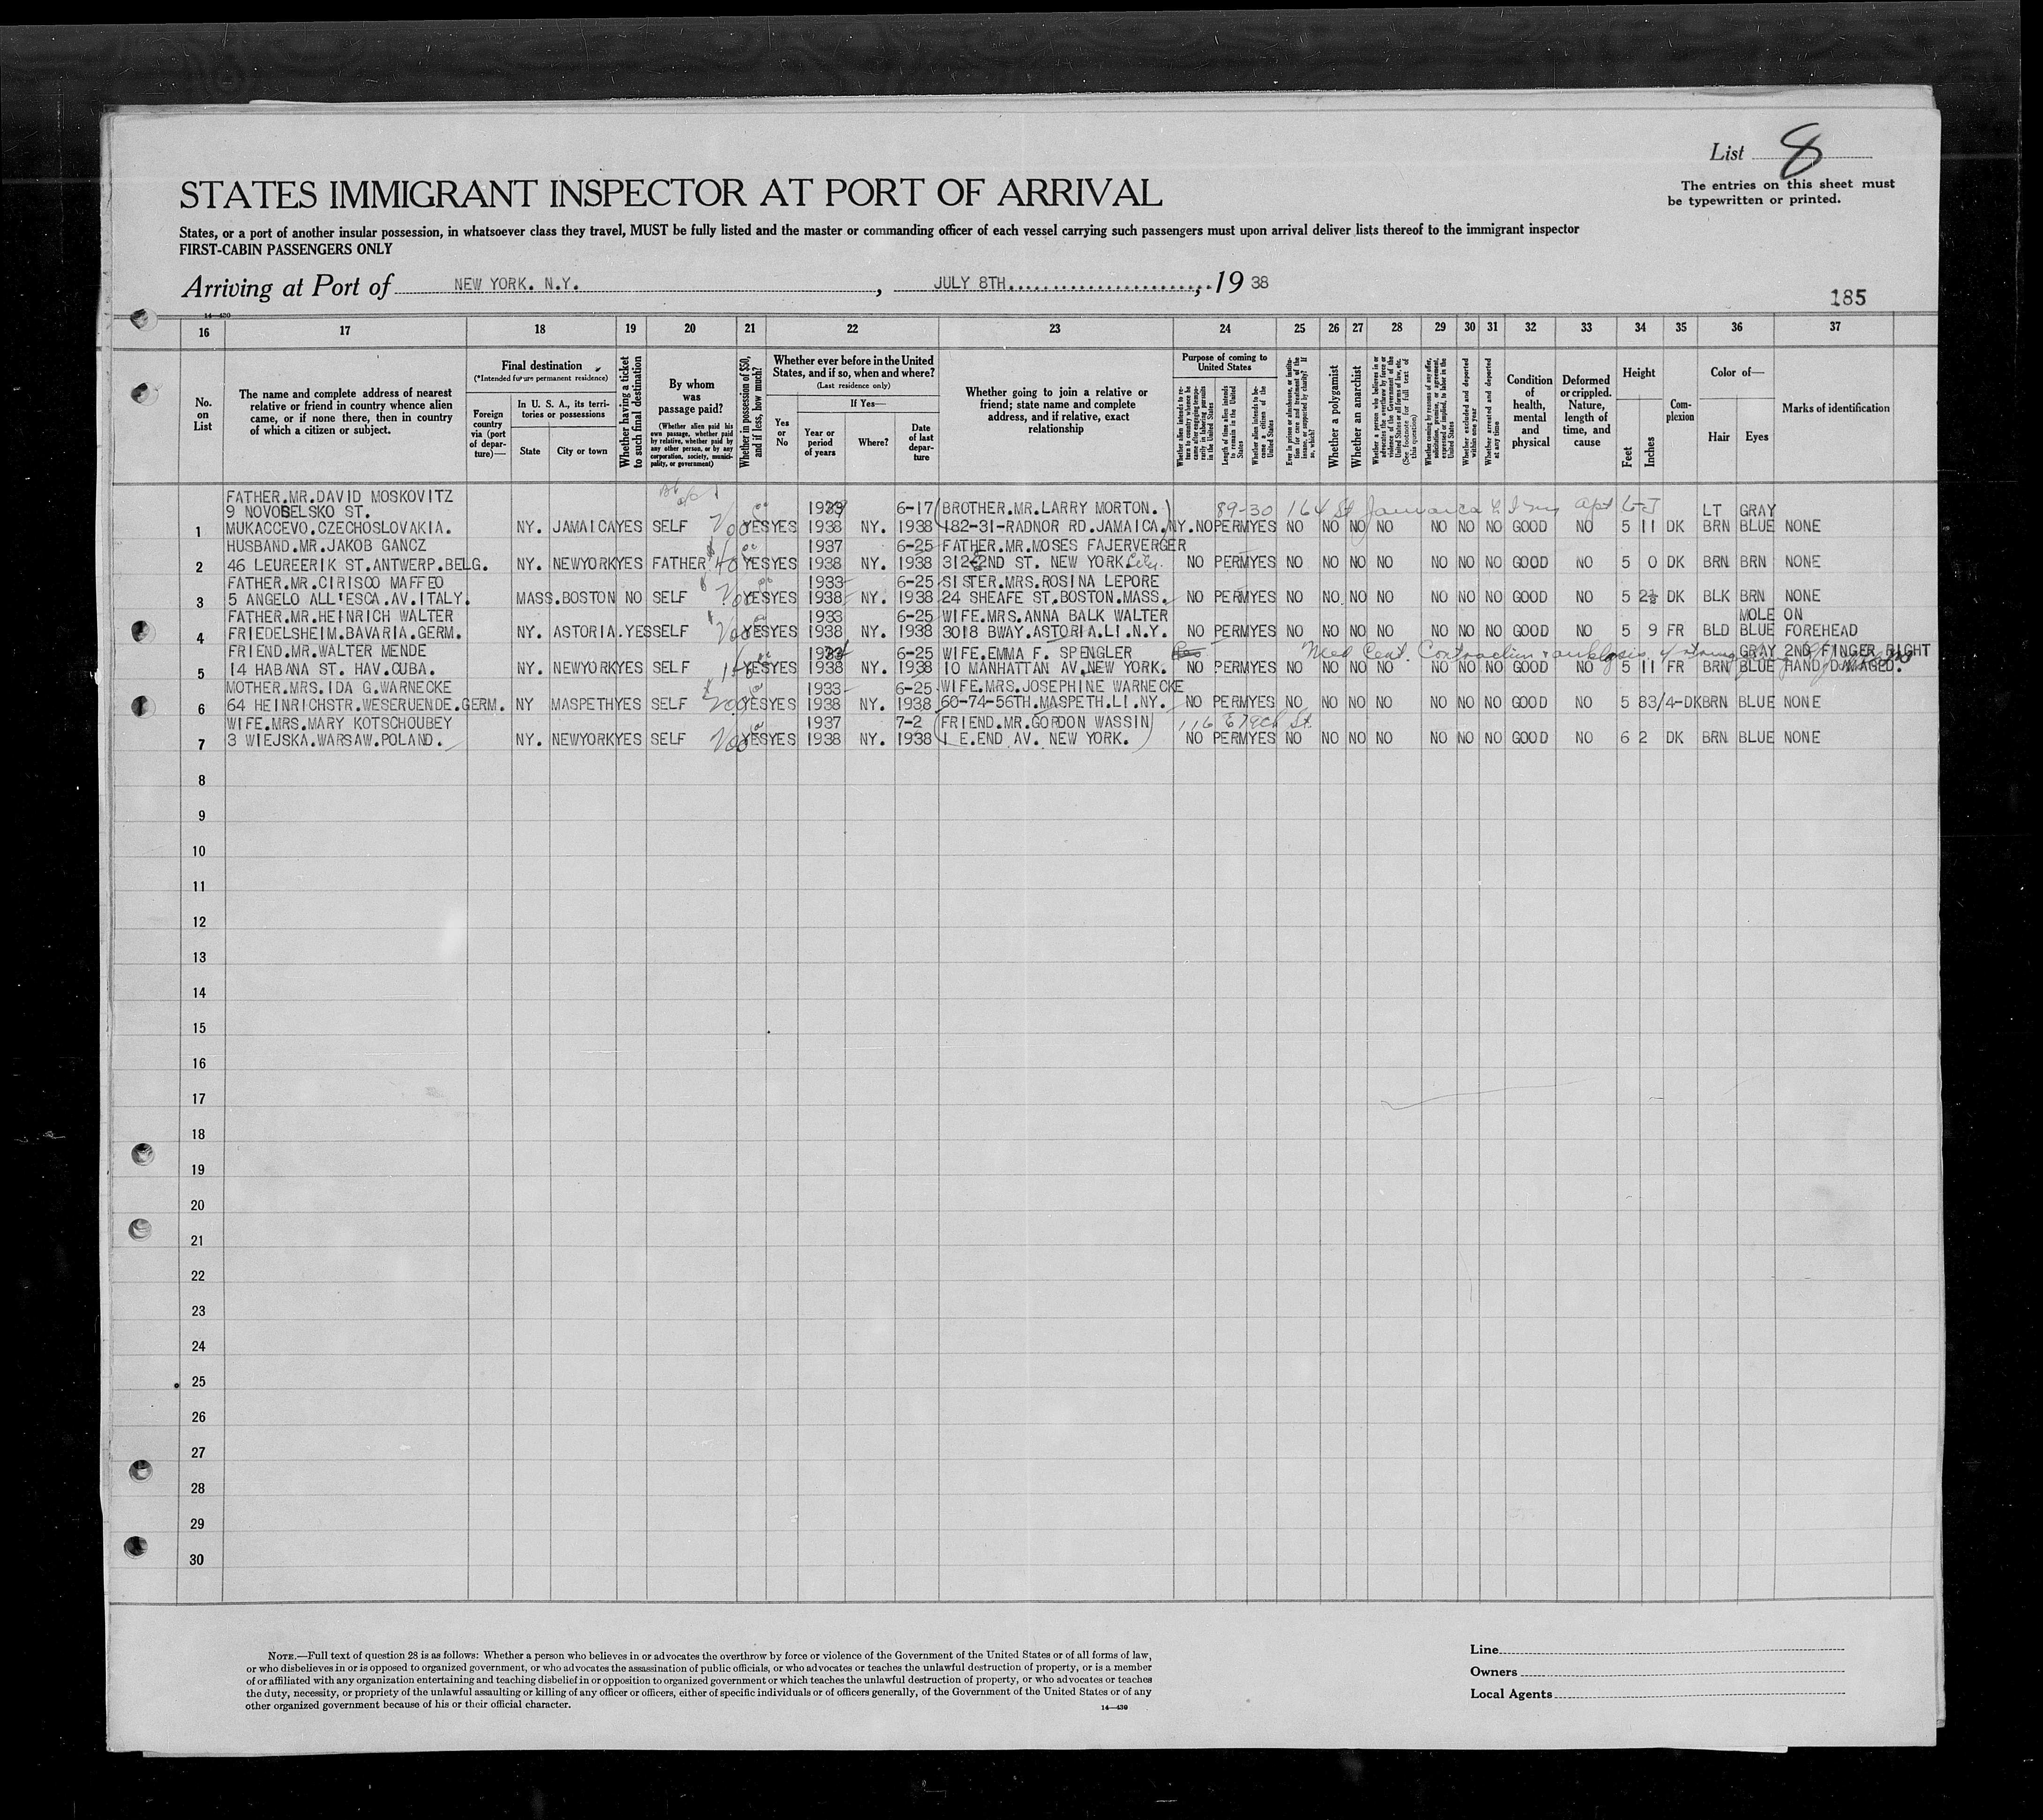 List 8
The entries on this sheet must
be typewritten or printed.
STATES IMMIGRANT INSPECTOR AT PORT OF ARRIVAL
States, or a port of another insular possession, in whatsoever class they travel, MUST be fully listed and the master or commanding officer of each vessel carrying such passengers must upon arrival deliver lists thereof to the immigrant inspector
FIRST-CABIN PASSENGERS ONLY
Arriving at Port of NEW YORK. N.Y. , JULY 8TH , 19 38
185
14—430
16 17 18 19 20 21 22 23 24 25 26 27 28 29 30 31 32 33 34 35 36 37
No. on List
The name and complete address of nearest relative or friend in country whence alien came, or if none there, then in country of which a citizen or subject.
Final destination
(*Intended future permanent residence)
Foreign country via (port of departure)—
In U. S. A., its territories or possessions
State
City or town
Whether having a ticket to such final destination
By whom was passage paid?
(Whether alien paid his own passage, whether paid by relative, whether paid by any other person, or by any corporation, society, municipality, or government)
Whether in possession of $50, and if less, how much?
Whether ever before in the United States, and if so, when and where?
(Last residence only)
Yes or No
If Yes—
Year or period of years
Where?
Date of last departure
Whether going to join a relative or friend; state name and complete address, and if relative, exact relationship
Purpose of coming to United States
Whether alien intends to return to country whence he came after engaging temporarily in laboring pursuits in the United States
Length of time alien intends to remain in the United States
Whether alien intends to become a citizen of the United States
Ever in prison or almshouse, or institution for care and treatment of the insane, or supported by charity? If so, which?
Whether a polygamist
Whether an anarchist
Whether a person who believes in or advocates the overthrow by force or violence of the Government of the United States or all forms of law, etc. (See footnote for full text of this question)
Whether coming by reasons of any offer, solicitation, promise, or agreement, expressed or implied, to labor in the United States
Whether excluded and deported within one year
Whether arrested and deported at any time
Condition of health, mental and physical
Deformed or crippled. Nature, length of time, and cause
Height
Feet
Inches
Complexion
Color of—
Hair
Eyes
Marks of identification
FATHER.MR.DAVID MOSKOVITZ
9 NOVOSELSKO ST. 1939 6-17 (BROTHER.MR.LARRY MORTON.) 89-30 164 St Jamaica Apt 6-J LT GRAY
1 MUKACCEVO.CZECHOSLOVAKIA. NY. JAMAICA YES SELF 200 YES YES 1938 NY. 1938 182-31-RADNOR RD.JAMAICA.NY. NO PERM YES NO NO NO NO NO NO NO GOOD NO 5 11 DK BRN BLUE NONE
HUSBAND.MR.JAKOB GANCZ 1937 6-25 FATHER.MR.MOSES FAJERVERGER
2 46 LEUREERIK ST.ANTWERP.BELG. NY. NEWYORK YES FATHER 40 YES YES 1938 NY. 1938 312 2ND ST. NEW YORK City. NO PERM YES NO NO NO NO NO NO NO GOOD NO 5 0 DK BRN BRN NONE
FATHER.MR.CIRISCO MAFFEO 1933 6-25 SISTER.MRS.ROSINA LEPORE
3 5 ANGELO ALL'ESCA.AV.ITALY. MASS.BOSTON NO SELF YES YES 1938 NY. 1938 24 SHEAFE ST.BOSTON.MASS. NO PERM YES NO NO NO NO NO NO NO GOOD NO 5 2½ DK BLK BRN NONE
FATHER.MR.HEINRICH WALTER 1933 6-25 WIFE.MRS.ANNA BALK WALTER MOLE ON
4 FRIEDELSHEIM.BAVARIA.GERM. NY. ASTORIA. YES SELF 200 YES YES 1938 NY. 1938 3018 BWAY.ASTORIA.LI.N.Y. NO PERM YES NO NO NO NO NO NO NO GOOD NO 5 9 FR BLD BLUE FOREHEAD
FRIEND.MR.WALTER MENDE 1934 6-25 WIFE.EMMA F. SPENGLER Med Cert. Contraction & anklosis of GRAY 2ND FINGER RIGHT
5 14 HABANA ST. HAV.CUBA. NY. NEWYORK YES SELF YES YES 1938 NY. 1938 10 MANHATTAN AV.NEW YORK. NO PERM YES NO NO NO NO NO NO NO GOOD NO 5 11 FR BRN BLUE HAND DAMAGED.
MOTHER.MRS.IDA G.WARNECKE 1933 6-25 WIFE.MRS.JOSEPHINE WARNECKE
6 64 HEINRICHSTR.WESERUENDE.GERM. NY MASPETH YES SELF 200 YES YES 1938 NY. 1938 60-74-56TH.MASPETH.LI.NY. NO PERM YES NO NO NO NO NO NO NO GOOD NO 5 83/4-DK BRN BLUE NONE
WIFE.MRS.MARY KOTSCHOUBEY 1937 7-2 (FRIEND.MR.GORDON WASSIN) 116 E 79th St.
7 3 WIEJSKA.WARSAW.POLAND. NY. NEWYORK YES SELF 200 YES YES 1938 NY. 1938 1 E.END AV. NEW YORK. NO PERM YES NO NO NO NO NO NO NO GOOD NO 6 2 DK BRN BLUE NONE
8
9
10
11
12
13
14
15
16
17
18
19
20
21
22
23
24
25
26
27
28
29
30
NOTE.—Full text of question 28 is as follows: Whether a person who believes in or advocates the overthrow by force or violence of the Government of the United States or of all forms of law,
or who disbelieves in or is opposed to organized government, or who advocates the assassination of public officials, or who advocates or teaches the unlawful destruction of property, or is a member
of or affiliated with any organization entertaining and teaching disbelief in or opposition to organized government or which teaches the unlawful destruction of property, or who advocates or teaches
the duty, necessity, or propriety of the unlawful assaulting or killing of any officer or officers, either of specific individuals or of officers generally, of the Government of the United States or of any
other organized government because of his or their official character.
14—430
Line
Owners
Local Agents